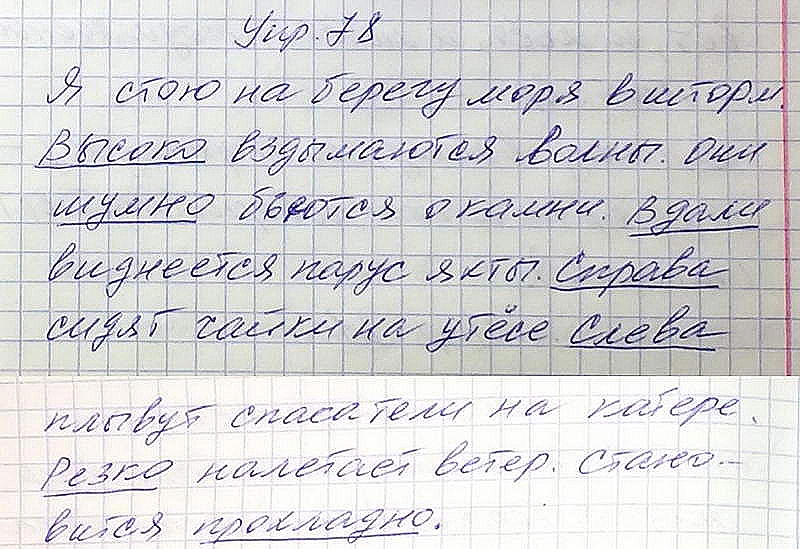 Упр. 78
Я стою на берегу моря в шторм.
Высоко вздымаются волны. Они
шумно бьются о камни. Вдали
виднеется парус яхты. Справа
сидят чайки на утёсе. Слева
плывут спасатели на катере.
Резко налетает ветер. Стано-
вится прохладно.